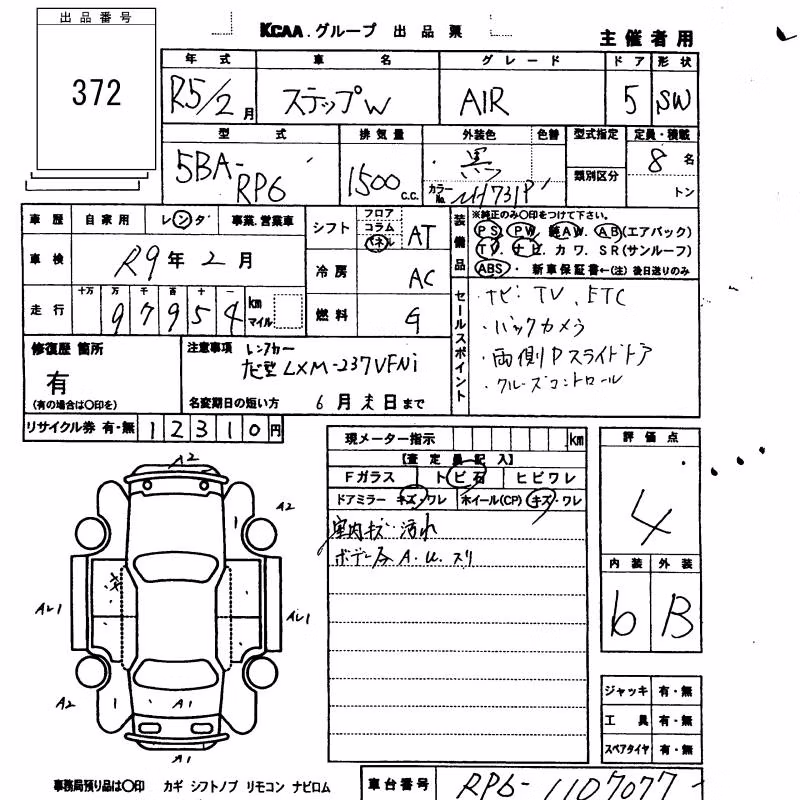 出品番号
372
KCAA.グループ 出品票
主催者用
年式 車名 グレード ドア 形状
R5/2月 ステップW AIR 5 SW
型式 排気量 外装色 色替 型式指定 定員・積載
5BA-RP6 1500c.c. 黒 類別区分 8名
カラーNo. NH731P トン
車歴 自家用 レンタ 事業.営業車
車検 R9年2月
走行 十万 万 千 百 十 一
97954 km マイル
シフト フロア コラム インネ AT
冷房 AC
燃料 G
装備品
※純正のみ〇印をつけて下さい。
PS. PW. 純AW. AB(エアバック)
TV. ナビ. カワ. SR(サンルーフ)
ABS. 新車保証書←(注)後日送りのみ
セールスポイント
・ナビ・TV、ETC
・バックカメラ
・両側Pスライドドア
・クルーズコントロール
修復歴 箇所
有
(有の場合は〇印を)
注意事項 レンタカー
ナビ型LXM-237VFNi
名変期日の短い方 6月末日まで
リサイクル券 有・無 12310円
現メーター指示 km
【査定員記入】
Fガラス トビ石 ヒビワレ
ドアミラー キズ・ワレ ホイール(CP) キズ・ワレ
室内キズ・汚れ
ボデー各A.U.スリ
評価点
4
内装 外装
b B
A2
A2
1
AU1
AU1
A2
1
A1
1
A1
ジャッキ 有・無
工具 有・無
スペアタイヤ 有・無
事務局預り品は〇印 カギ シフトノブ リモコン ナビロム
車台番号 RP6-1107077